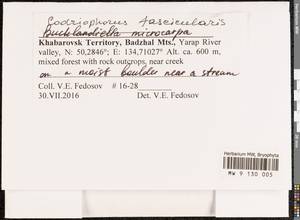 Codriophorus fascicularis
Bucklandiella microcarpa
Khabarovsk Territory, Badzhal Mts., Yarap River
valley, N: 50,2846°; E: 134,71027° Alt. ca. 600 m,
mixed forest with rock outcrops, near creek
on a moist boulder near a stream
Coll. V.E. Fedosov # 16-28
30.VII.2016 Det. V.E. Fedosov
Herbarium MW, Bryophyta
MW 9 130 005